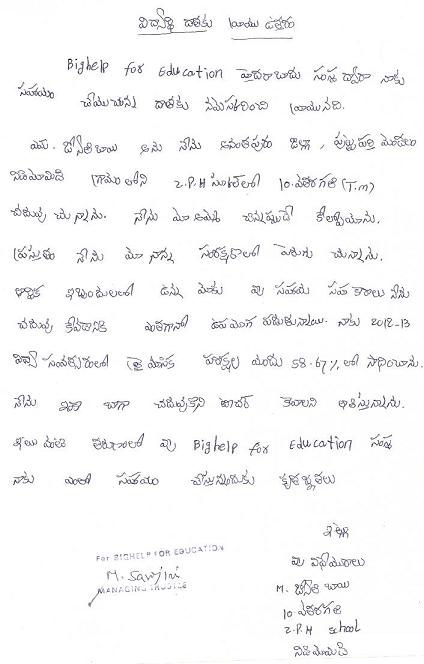 విద్యార్థి దాతకు వ్రాయు ఉత్తరం
Bighelp for Education హైదరాబాదు సంస్థ ద్వారా నాకు
సహాయం చేయుచున్న దాతకు నమస్కరించి వ్రాయునది.
యం. జ్యోతి బాయి అను నేను అనంతపురం జిల్లా, పుట్టపర్తి మండలం
గ్రామం లోని Z.P.H స్కూల్ లో 10వ తరగతి (T.m)
చదువు చున్నాను. నేను మా అమ్మ చిన్నప్పుడే కోల్పోయాను.
ప్రస్తుతం నేను మా నాన్న సంరక్షణలో పెరుగు చున్నాను.
ఆర్థిక ఇబ్బందులలో ఉన్న మాకు మీ సహాయ సహకారాలు నేను
చదువు కోవడానికి ఎంతగానో ఉపయోగ పడుతున్నాయి. నాకు 2012-13
విద్యా సంవత్సరంలో త్రై మాసిక పరీక్షల యందు 58.67% లో సాధించాను.
నేను ఇంకా బాగా చదువుకొని టీచర్ కావాలని ఆశిస్తున్నాను.
ఇటువంటి తరుణంలో మీ Bighelp for Education సంస్థ
నాకు ఎంతో సహాయం చేస్తున్నందుకు కృతజ్ఞతలు
ఇట్లు
మీ విధేయురాలు
M. జ్యోతి బాయి
10వ తరగతి
Z.P.H School
For BIGHELP FOR EDUCATION
MANAGING TRUSTEE